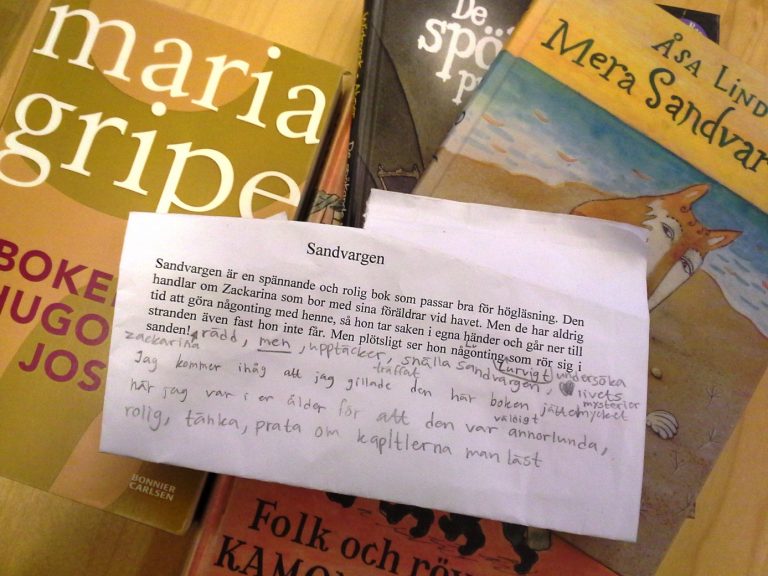 maria
gripe
BOKE
HUGO
JOS
BONNIER
CARLSEN
De
spö
ÅSA LIND
Mera Sandvar
Sandvargen
Sandvargen är en spännande och rolig bok som passar bra för högläsning. Den
handlar om Zackarina som bor med sina föräldrar vid havet. Men de har aldrig
tid att göra någonting med henne, så hon tar saken i egna händer och går ner till
stranden även fast hon inte får. Men plötsligt ser hon någonting som rör sig i
sanden! rädd, men, upptäcker, snälla sandvargen, lurvigt undersöka
zackarina träffat livets
mysterier
Jag kommer ihåg att jag gillade den här boken jättemycket
när jag var i er ålder för att den var annorlunda,
väldigt
rolig, tänka, prata om kapitlerna man läst
Folk och röv
KAMO